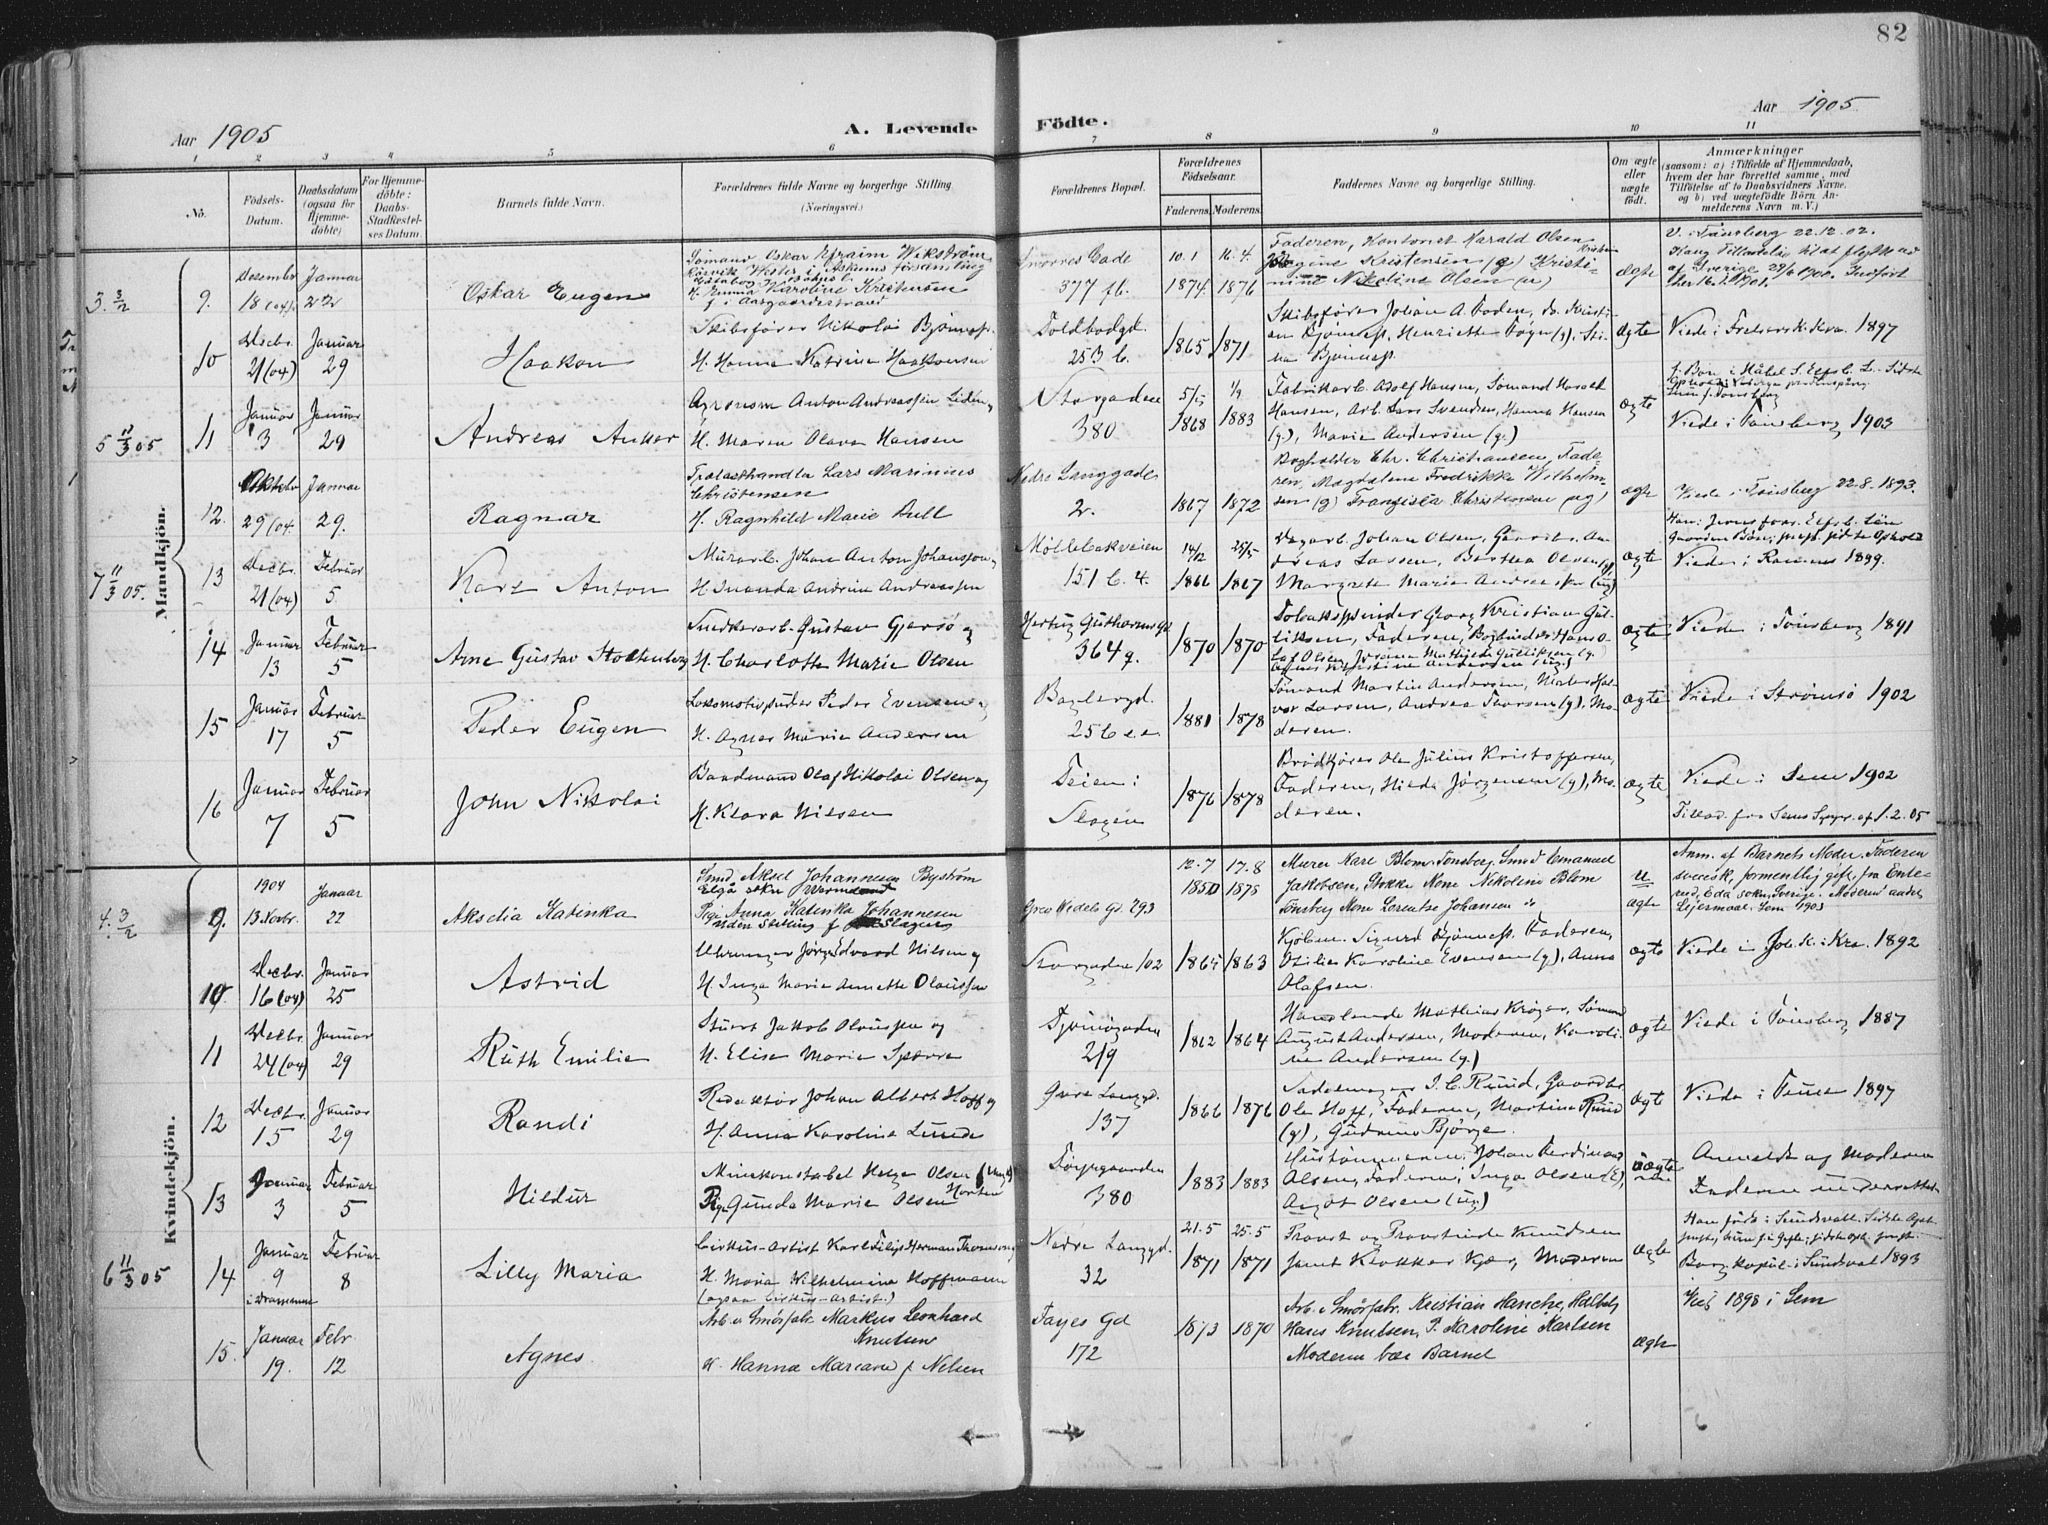 82
Aar 1905
A. Levende Födte.
Aar 1905
1 2 3 4 5 6 7 8 9 10 11
No.
Födsels-Datum.
Daabsdatum (ogsaa for Hjemmedöbte)
For Hjemmedöbte: Daabs-Stadfæstelses Datum.
Barnets fulde Navn.
Forældrenes fulde Navne og borgerlige Stilling (Næringsvei.)
Forældrenes Bopæl.
Forældrenes Födselsaar.
Faderens. Moderens.
Faddernes Navne og borgerlige Stilling.
Om ægte eller uægte födt.
Anmærkninger
(saasom: a) i Tilfælde af Hjemmedaab, hvem der har forrettet samme, med Tilföielse af to Daabsvidners Navne, og b) ved uægtefödte Börn Anmelderens Navn m. V.)
Mandkjön.
3. 3/2
9.
Desembr 18 (04)
Januar 22
Oskar Eugen
Sömand Oskar Efraim Wikström
H. Emma Karoline Kristensen
f i Aasgaardstrand
Gade
377 fb.
10.1 1874.
16.4. 1876
Faderen, Kontorist Harald Olsen
Kristensen (g) Kristi-
nine Nikoline Olsen (u)
ægte
V. i Tönsberg 22.12.02.
10
Decbr. 21 (04)
Januar 29
Haakon
Skibsförer Nikolai Bjönness
H. Hanna Katrine Haakonsen
Toldbodgd.
253 b.
1865
1871
Skibsförer Johan A. Foden,
Bjönness, Henriette Foyn (g),
Bjönness.
ægte
Viede i 1897
5 11/3 05
11
Januar 3
Januar 29
Andreas Anker
Agronom Anton Andreassen Liden
H. Maren Olava Hansen
Storgaden
380
1868
1883
Fabrikarb. Adolf Hansen, Sömand Harald
Hansen, Arb. Lars Svendsen, Hanna Hansen
(g.), Marie Andersen (g.)
ægte
Viede i Tönsberg 1903
12.
Oktobr 29 (04
Januar 29.
Ragnar
Trælasthandler Lars Marinius
Christensen
H. Ragnhild Marie Bull
Nedre Langgade
2.
1867
1872
Bogholder Chr. Christiansen, Fade-
ren, Magdalene Fredrikke Wilhelm-
sen (g) Franziska Christensen (ug)
ægte
Viede i Tönsberg 22.8.1893.
7 11/3 05.
13
Decbr. 21 (04)
Februar 5.
Karl Anton
Murarb. Johan Anton Johansson
H. Amanda Andrine Andreassen
Möllebakveien
151 b. 4.
14/12 1866
25/5 1867
Johan Olsen, Gaardbr. An-
dreas Lassen, Berthea Olsen (g),
Margrete Marie Andreassen (ug)
ægte
Viede i Ramnes 1899.
14
Januar 13
Februar 5
Arne Gustav Stoltenberg
Snedkerarb. Gustav Gjersö og
H. Charlotte Marie Olsen
Hertug Guthormsgd
364 g.
1870
1870
Tobakspinder Georg Kristian Gul-
liksen, Faderen, Bogbinder Hans O-
laf Olsen, Mathilde Gulliksen (g.)
Andersen (ug.)
ægte
Viede i Tönsberg 1891
15
Januar 17
Februar 5
Peder Eugen
Lokomotivpudser Peder Evensen og
H. Agnes Marie Andersen
Baglergd.
256 e.e
1881
1878
Sömand Martin Andersen, Maler Hal-
vor Larsen, Andrea Thorsen (g), Mo-
deren.
ægte
Viede i Strömsö 1902
16
Januar 7
Februar 5
John Nikolai
Baadsmand Olaf Nikolai Olsen og
H. Klara Nilsen
Teien i
Slagen
1876
1878
Brödkjörer Ole Julius Kristoffersen,
Faderen, Hilda Jörgensen (g), Mo-
deren.
ægte
Viede i Sem 1902
Tillad. fra Sems Spgr. af 1.2.05
Kvindekjön.
4. 3/2
9.
1904
13 Novbr.
Januar 22
Akselia Katinka
Smed Aksel Johannesen Byström
Pige Anna Katinka Johannesen
uden Stilling f Slagen
Grev Wedels Gd 293
12.7 1850
17.8 1875
Murer Karl Blom Tönsberg. Smed Emanuel
Jakobsen, Stokke Kone Nikoline Blom
Tönsberg Kone Lorentze Johansen
u ægte
Anm. af Barnets Moder. Faderen
svensk, formentlig gift, fra
Eda sokn, Sverige. Moderen andet
Leiermaal. Sem 1903
10.
Decbr. 16 (04)
Januar 25
Astrid
Uhrmager Jörgen Edvard Nilsen og
H. Inga Marie Annette Olaussen
Storgaden 102
1864
1863
Kjöbm. Sigurd Bjönness, Faderen,
Otilie Karoline Evensen (g), Anna
Olafsen.
ægte
Viede i Joh. K. i Kra. 1892
11
Decbr. 24 (04)
Januar 29
Ruth Emilie
Stuert Jakob Olaussen og
H. Elise Marie Sparre
Tjömögaden
219
1862
1864
Handlende Mathias Kröger, Sömand
August Andersen, Moderen, Karoli-
ne Andersen (g.)
ægte
Viede i Tönsberg 1887
12
Decbr. 15
Januar 29
Randi
Redaktör Johan Albert Hoff og
H. Anna Karoline Lunde
Övre Langgd.
137
1866
1876
Sadelmager J. C. Ruud, Gaardbr.
Ole Hoff, Faderen, Martine Ruud
(g), Gudrun Bjørge.
ægte
Viede i 1897
13
Januar 3
Februar 5
Hildur
Minekonstabel Helge Olsen (ung)
Horten
Pige Gunda Marie Olsen
Föyngaarden
380
1883
1883
Hustömmerm. Johan Ferdinand
Olsen, Faderen, Inga Olsen (E),
Aagot Olsen (ug)
uægte
Anmeldt af Moderen
Faderen underrettet
6 11/3 05
14
Januar 9
i Drammen
Februar 8
Lilly Maria
Cirkus-Artist Karl Filip Herman Thomson
H. Maria Wilhelmina Hoffmann
(ogsaa Cirkus-Artist.)
Nedre Langgd.
32
21.5 1871
25.5 1871
Provst og Provstinde Knudsen
samt Klokker Kjær, Moderen
ægte
Han födt i Sundsvall.
i Sundsval 1893
15.
Januar 19.
Febr 12
Agnes.
Arb. v. Smörfabr. Markus Leonhard
Knutsen
H. Hanna Mariane f Nilsen
Fayes Gd
172
1873
1870
Arb. v. Smörfabr. Kristian Hanche,
Hans Knutsen, P. Karoline Karlsen
Moderen bar Barnet
ægte
Viet 1898 i Sem